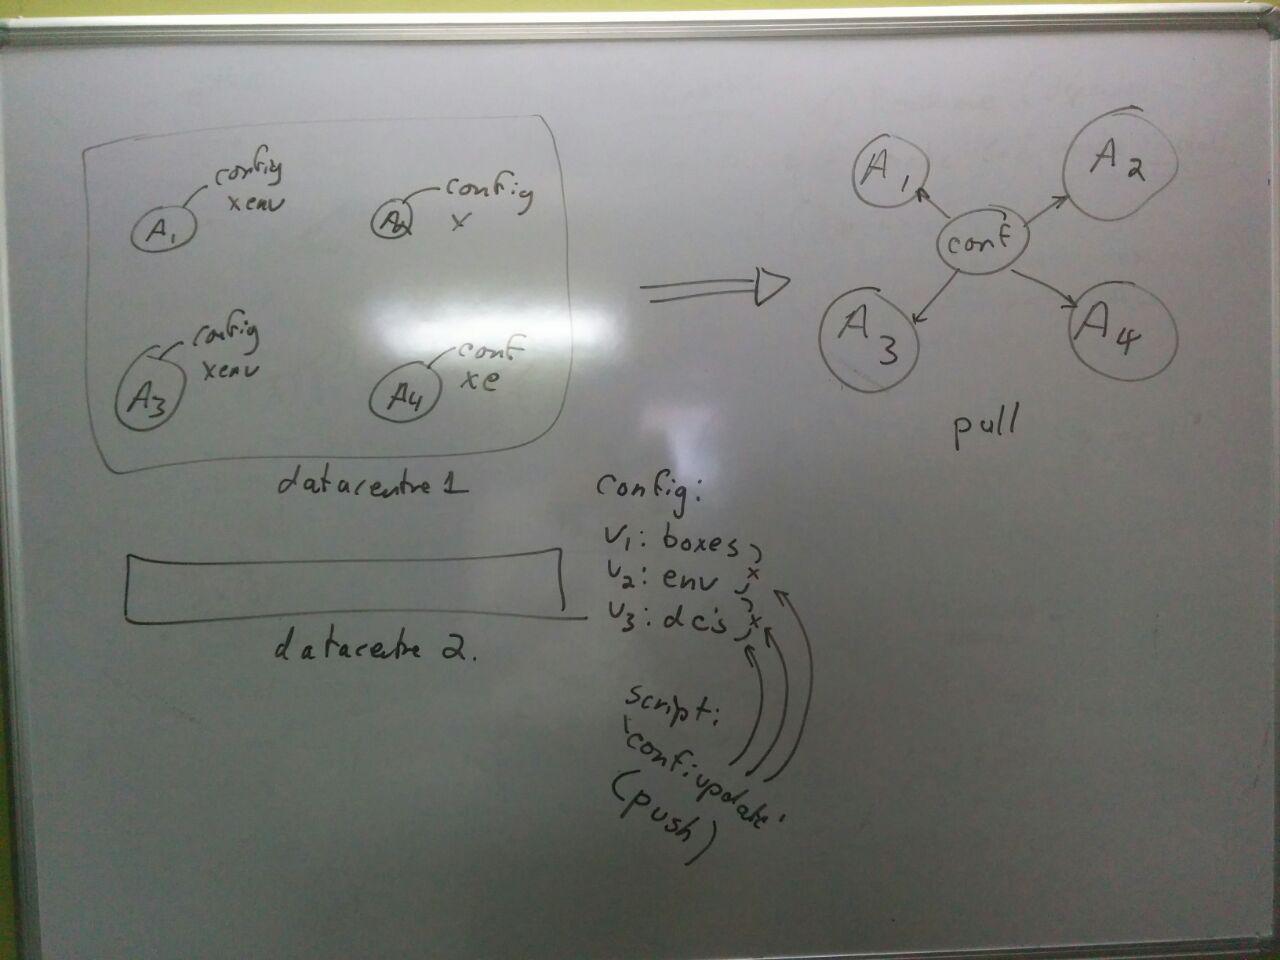 config
x env
A1
config
x
A2
config
x env
A3
conf
x e
A4
datacentre 1
datacentre 2.
A1
A2
conf
A3
A4
pull
config:
v1: boxes
v2: env x
v3: dc's x
script:
(push)